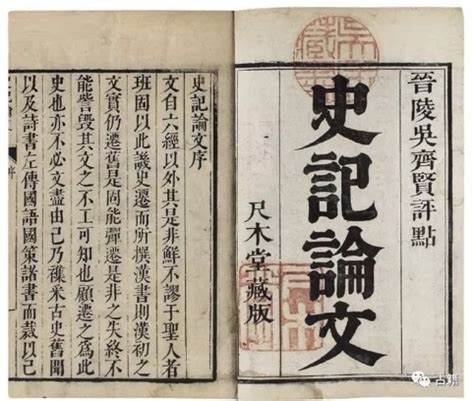 晉陵吳齊賢評點
史記論文
尺木堂藏版
史記論文序
文自六經以外其是非鮮不謬于聖人者
班固以此譏史遷而所撰漢書則漢初之
文實仍遷舊是固能彈遷是非之失終不
能訾毀其文之不工可知也顧遷之為此
史也亦不必文盡由己乃襍采古史舊聞
以及詩書左傳國語國策諸書而裁以己
序
古籍